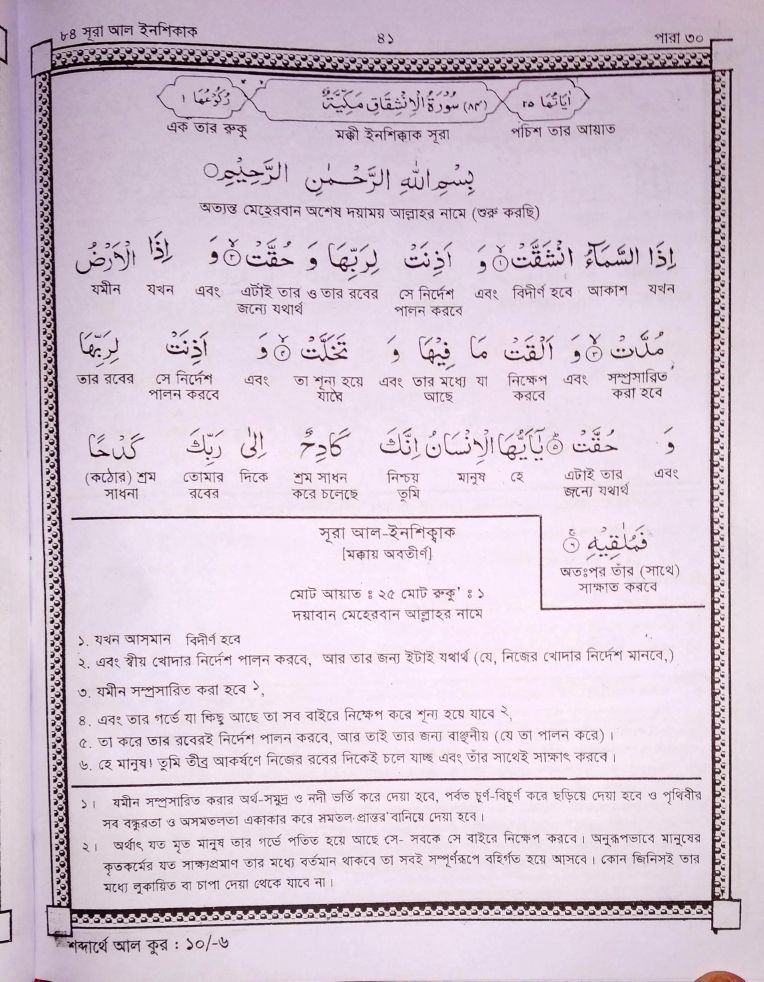 ৮৪ সূরা আল ইনশিকাক ৪১ পারা ৩০
اٰيَاتُهَا ٢٥ (٨٤) سُوْرَةُ الْاِنْشِقَاقِ مَكِّيَّةٌ رُكُوْعُهَا ١
এক তার রুকু মক্কী ইনশিক্বাক সূরা পঁচিশ তার আয়াত
بِسْمِ اللّٰهِ الرَّحْمٰنِ الرَّحِيْمِ
অত্যন্ত মেহেরবান অশেষ দয়াময় আল্লাহর নামে (শুরু করছি)
اِذَا السَّمَآءُ انْشَقَّتْ ۙ١ وَ اَذِنَتْ لِرَبِّهَا وَ حُقَّتْ ۙ٢ وَ اِذَا الْاَرْضُ
যমীন যখন এবং এটাই তার ও তার রবের সে নির্দেশ এবং বিদীর্ণ হবে আকাশ যখন
জন্যে যথার্থ পালন করবে
مُدَّتْ ۙ٣ وَ اَلْقَتْ مَا فِيْهَا وَ تَخَلَّتْ ۙ٤ وَ اَذِنَتْ لِرَبِّهَا
তার রবের সে নির্দেশ এবং তা শূন্য হয়ে এবং তার মধ্যে যা নিক্ষেপ এবং সম্প্রসারিত
পালন করবে যাবে আছে করবে করা হবে
وَ حُقَّتْ ۙ٥ يٰٓاَيُّهَا الْاِنْسَانُ اِنَّكَ كَادِحٌ اِلٰى رَبِّكَ كَدْحًا
(কঠোর) শ্রম তোমার দিকে শ্রম সাধন নিশ্চয় মানুষ হে এটাই তার এবং
সাধনা রবের করে চলেছে তুমি জন্যে যথার্থ
فَمُلٰقِيْهِ ۚ٦
অতঃপর তাঁর (সাথে)
সাক্ষাত করবে
সূরা আল-ইনশিকাক
[মক্কায় অবতীর্ণ]
মোট আয়াত ঃ ২৫ মোট রুকু' ঃ ১
দয়াবান মেহেরবান আল্লাহর নামে
১. যখন আসমান বিদীর্ণ হবে
২. এবং স্বীয় খোদার নির্দেশ পালন করবে, আর তার জন্য ইটাই যথার্থ (যে, নিজের খোদার নির্দেশ মানবে,)
৩. যমীন সম্প্রসারিত করা হবে ১,
৪. এবং তার গর্ভে যা কিছু আছে তা সব বাইরে নিক্ষেপ করে শূন্য হয়ে যাবে ২,
৫. তা করে তার রবেরই নির্দেশ পালন করবে, আর তাই তার জন্য বাঞ্ছনীয় (যে তা পালন করে)।
৬. হে মানুষ! তুমি তীব্র আকর্ষণে নিজের রবের দিকেই চলে যাচ্ছ এবং তাঁর সাথেই সাক্ষাৎ করবে।
১। যমীন সম্প্রসারিত করার অর্থ-সমুদ্র ও নদী ভর্তি করে দেয়া হবে, পর্বত চূর্ণ-বিচূর্ণ করে ছড়িয়ে দেয়া হবে ও পৃথিবীর
সব বন্ধুরতা ও অসমতলতা একাকার করে সমতল প্রান্তর বানিয়ে দেয়া হবে।
২। অর্থাৎ যত মৃত মানুষ তার গর্ভে পতিত হয়ে আছে সে- সবকে সে বাইরে নিক্ষেপ করবে। অনুরূপভাবে মানুষের
কৃতকর্মের যত সাক্ষ্যপ্রমাণ তার মধ্যে বর্তমান থাকবে তা সবই সম্পূর্ণরূপে বহির্গত হয়ে আসবে। কোন জিনিসই তার
মধ্যে লুকায়িত বা চাপা দেয়া থেকে যাবে না।
শব্দার্থে আল কুর : ১০/-৬